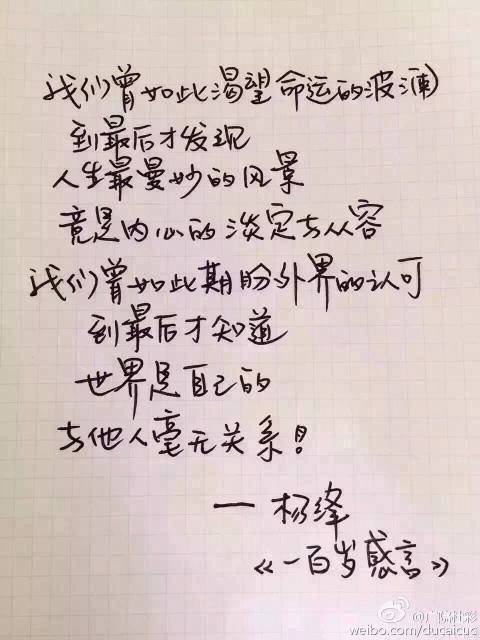 我们曾如此渴望命运的波澜
到最后才发现
人生最曼妙的风景
竟是内心的淡定与从容
我们曾如此期盼外界的认可
到最后才知道
世界是自己的
与他人毫无关系!
— 杨绛
《一百岁感言》
weibo.com/ducaicuc